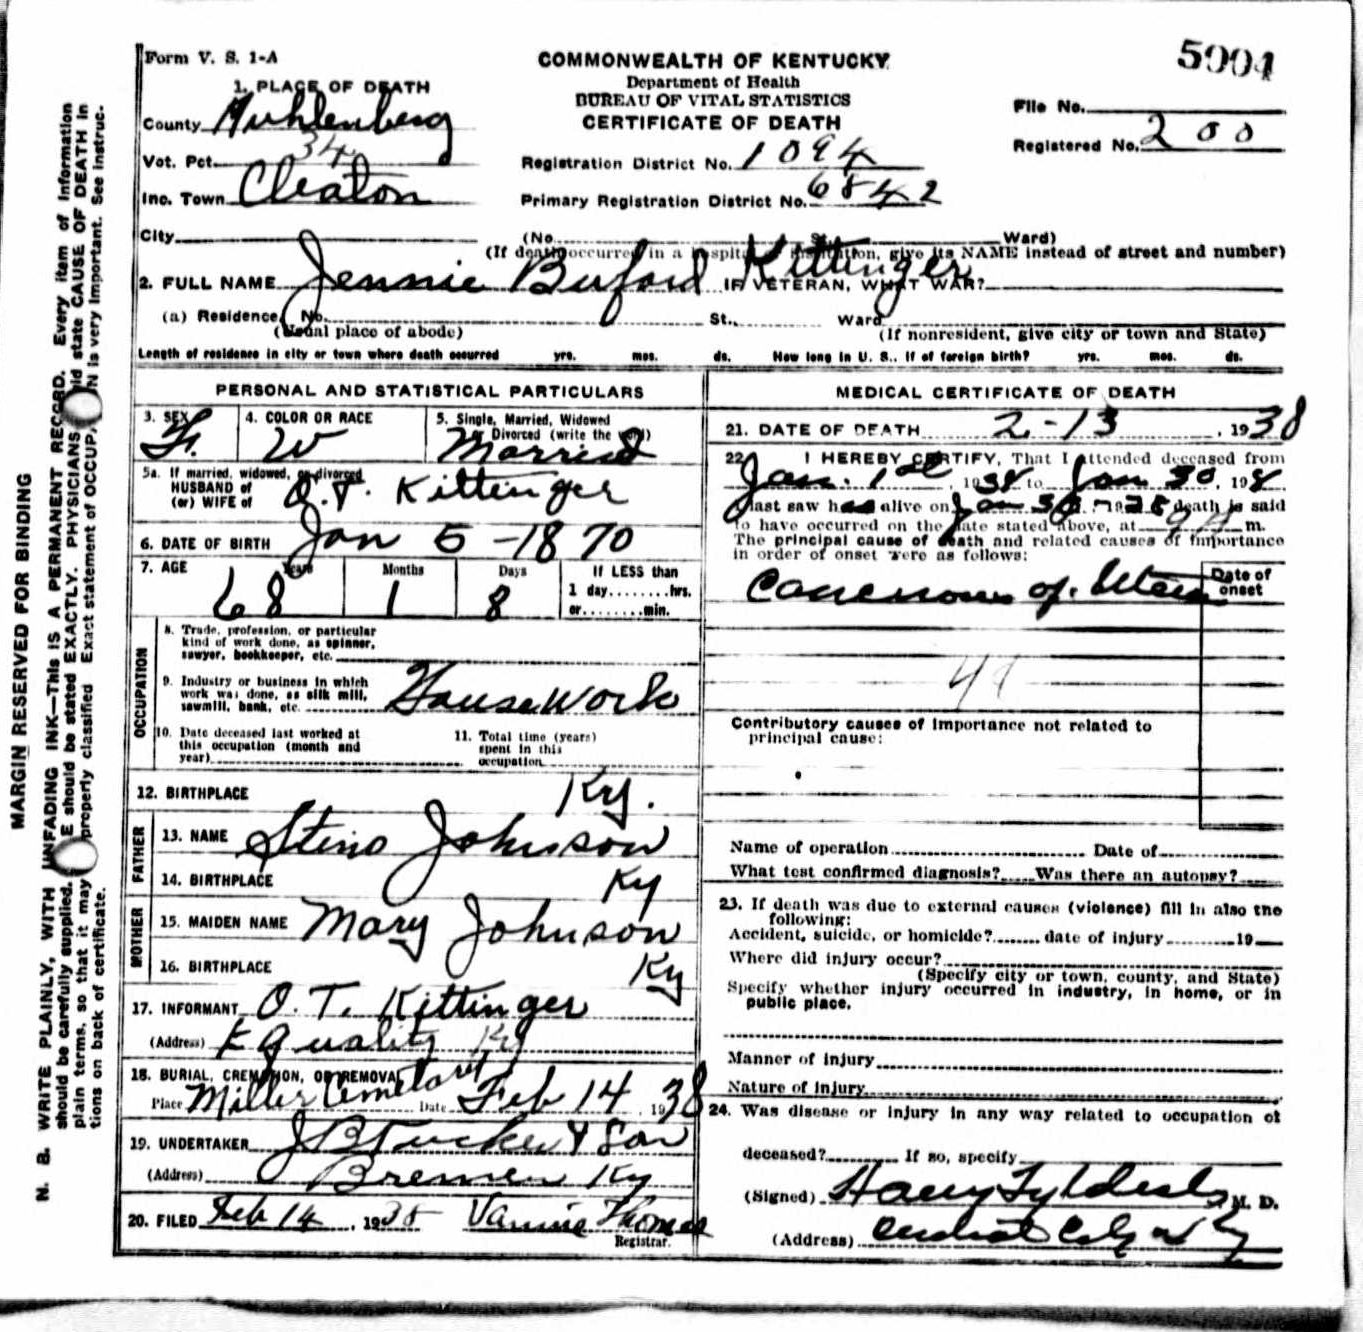 Form V. S. 1-A
COMMONWEALTH OF KENTUCKY
Department of Health
BUREAU OF VITAL STATISTICS
CERTIFICATE OF DEATH
5904
File No.
Registered No. 200
1. PLACE OF DEATH
County Muhlenberg
Vot. Pct. 34
Inc. Town Cleaton
Registration District No. 1094
Primary Registration District No. 6842
City (No. St. Ward)
(If death occurred in a hospital or institution, give its NAME instead of street and number)
2. FULL NAME Jennie Buford Kittinger IF VETERAN, WHAT WAR?
(a) Residence. No. St., Ward
(Usual place of abode) (If nonresident, give city or town and State)
Length of residence in city or town where death occurred yrs. mos. ds. How long in U. S., if of foreign birth? yrs. mos. ds.
PERSONAL AND STATISTICAL PARTICULARS
3. SEX F. 4. COLOR OR RACE W 5. Single, Married, Widowed or Divorced (write the word) Married
5a. If married, widowed, or divorced
HUSBAND of
(or) WIFE of O.T. Kittinger
6. DATE OF BIRTH Jan 5 - 1870
7. AGE 68 Years 1 Months 8 Days If LESS than
1 day........hrs.
or........min.
OCCUPATION
8. Trade, profession, or particular
kind of work done, as spinner,
sawyer, bookkeeper, etc.
9. Industry or business in which
work was done, as silk mill,
sawmill, bank, etc. House Work
10. Date deceased last worked at
this occupation (month and
year)
11. Total time (years)
spent in this
occupation
12. BIRTHPLACE Ky.
FATHER
13. NAME Stino Johnson
14. BIRTHPLACE Ky
MOTHER
15. MAIDEN NAME Mary Johnson
16. BIRTHPLACE Ky
17. INFORMANT O. T. Kittinger
(Address) Equality Ky
18. BURIAL, CREMATION, OR REMOVAL
Place Miller Cemetary Date Feb 14, 1938
19. UNDERTAKER J B Tucker & Son
(Address) Bremen Ky
20. FILED Feb 14, 1938 Vannie Thomas
Registrar.
MEDICAL CERTIFICATE OF DEATH
21. DATE OF DEATH 2-13, 1938
22. I HEREBY CERTIFY, That I attended deceased from
Jan. 1st, 1938 to Jan 30, 1938
I last saw her alive on Jan 30, 1938 death is said
to have occurred on the date stated above, at 9 A m.
The principal cause of death and related causes of importance
in order of onset were as follows:
Date of
onset
of Uterus
Contributory causes of importance not related to
principal cause:
Name of operation Date of
What test confirmed diagnosis? Was there an autopsy?
23. If death was due to external causes (violence) fill in also the
following:
Accident, suicide, or homicide? date of injury 19
Where did injury occur?
(Specify city or town, county, and State)
Specify whether injury occurred in industry, in home, or in
public place.
Manner of injury
Nature of injury
24. Was disease or injury in any way related to occupation of
deceased? If so, specify
(Signed) M. D.
(Address) Central City Ky
MARGIN RESERVED FOR BINDING
N. B. WRITE PLAINLY, WITH UNFADING INK—THIS IS A PERMANENT RECORD. Every item of information
should be carefully supplied. AGE should be stated EXACTLY. PHYSICIANS should state CAUSE OF DEATH in
plain terms, so that it may be properly classified. Exact statement of OCCUPATION is very important. See instruc-
tions on back of certificate.